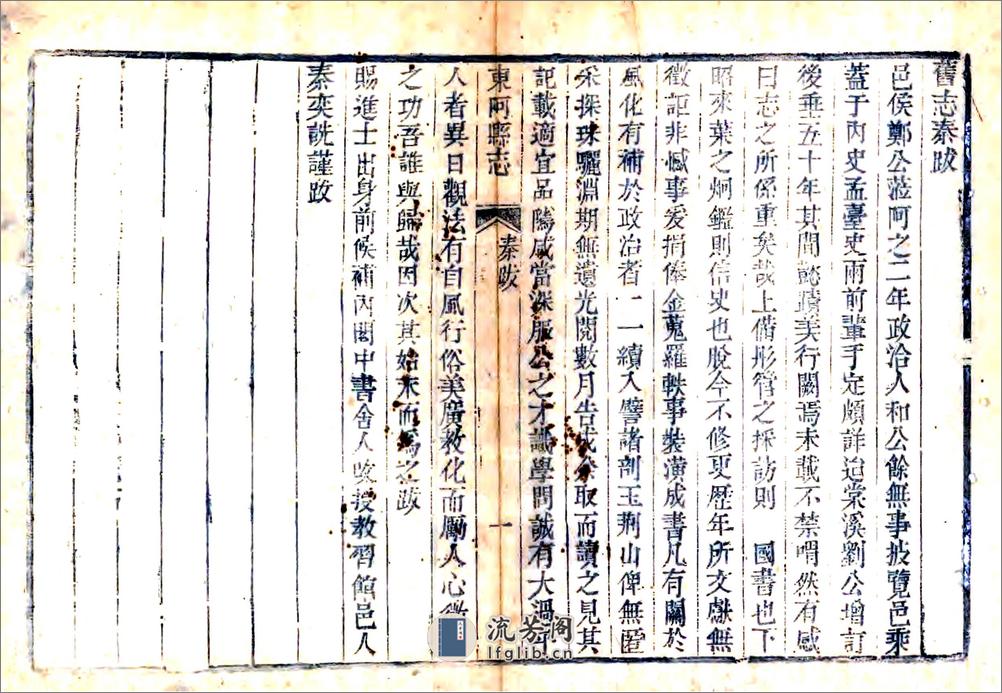 舊志秦跋
邑侯鄭公蒞阿之二年政洽人和公餘無事披覽邑乘
葢于丙史孟臺史兩前輩手定頗詳迨棠溪劉公增訂
後垂五十年其間懿蹟美行闕焉未載不禁喟然有感
曰志之所係重矣哉上備彤管之採訪則 國書也下
昭來葉之炯鑑則信史也脫今不修更歷年所文獻無
徵詎非憾事爰捐俸金蒐羅軼事裝潢成書凡有關於
風化有補於政治者一一續入譬諸剖玉荆山俾無匿
采探珠驪淵期無遺光閱數月告成余取而讀之見其
記載適宜品隲咸當深服公之才識學問誠有大過
東阿縣志 秦跋 一
人者異日觀法有自風行俗美廣教化而勵人心
之功吾誰與歸哉因次其始末而爲之跋
賜進士出身前候補內閣中書舍人改授教習館邑人
秦奕詵謹跋
流芳阁
lfglib.cn